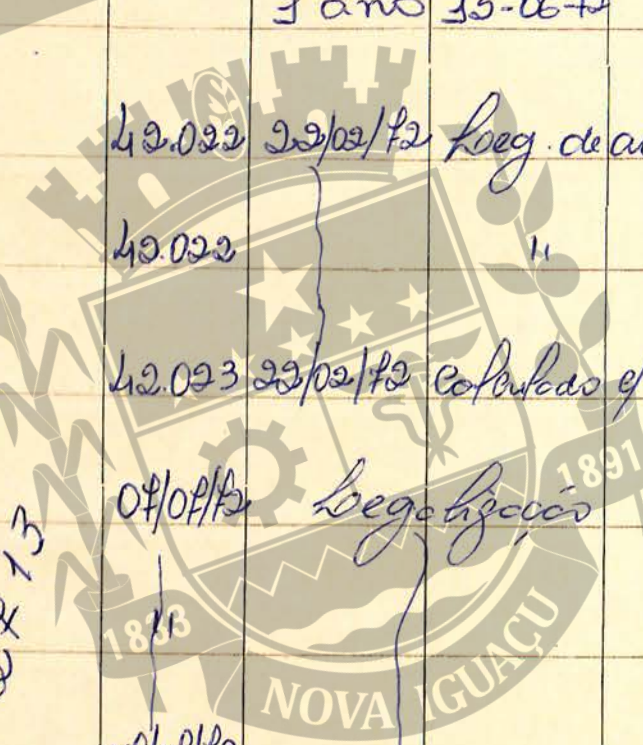 1 ano 15-06-72
42.022 22/02/72 Leg. de
42.022 "
42.023 22/02/72 Calculado
07/07/72 Legalização
"
13
1891
1833
NOVA IGUAÇU